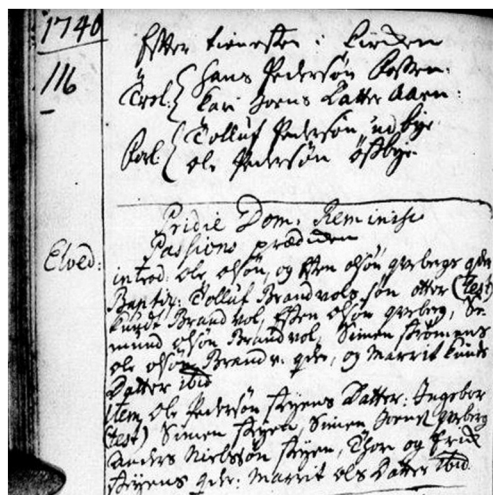 1740
116
Efter tienesten i Kirken
Trol: Hans Pedersøn
Kari Joens Datter Aaen:
Tolluf Pedersøn udbye
Ole Pedersøn østbye
Pridie Dom. Reminisc
Passions prædiken
Elved:
introd: Ole Olsøn, og Esten Olsøn qvebergs qder
Baptiz: Tolluf Brandvols søn otter (Test)
Knudt Brandvol, Esten Olsøn qveberg, Se-
mund Olsøn Brandvol, Simen Strømens
Ole Olsøn Brandv: qde, og Marrit Knuds
Datter ibid
Item, Ole Pedersøn Datter: Ingebor
(test) Simen, Simen Joens qveberg
Anders Nielsøn, Thor og
qde: Marrit Ols Datter ibid.